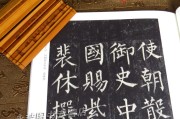 使朝散
御史中
國賜紫
裴休撰